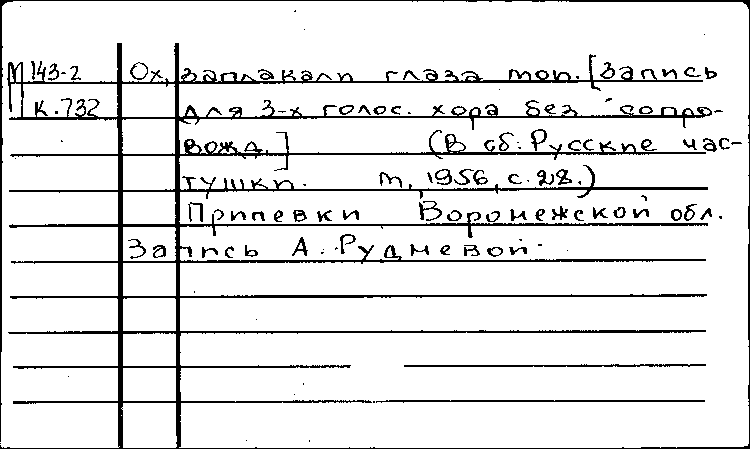 М 143-2 Ох, заплакали глаза мои. [Запись
К.732 для 3-х голос. хора без сопро-
вожд.] (В сб: Русские час-
тушки. М, 1956, с. 28.)
Припевки Воронежской обл.
Запись А. Рудневой.